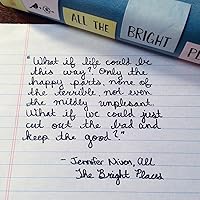 ALL THE BRIGHT
"What if life could be
this way? Only the
happy parts, none of
the terrible, not even
the mildly unpleasant.
What if we could just
cut out the bad and
keep the good?"
- Jennifer Niven, All
The Bright Places